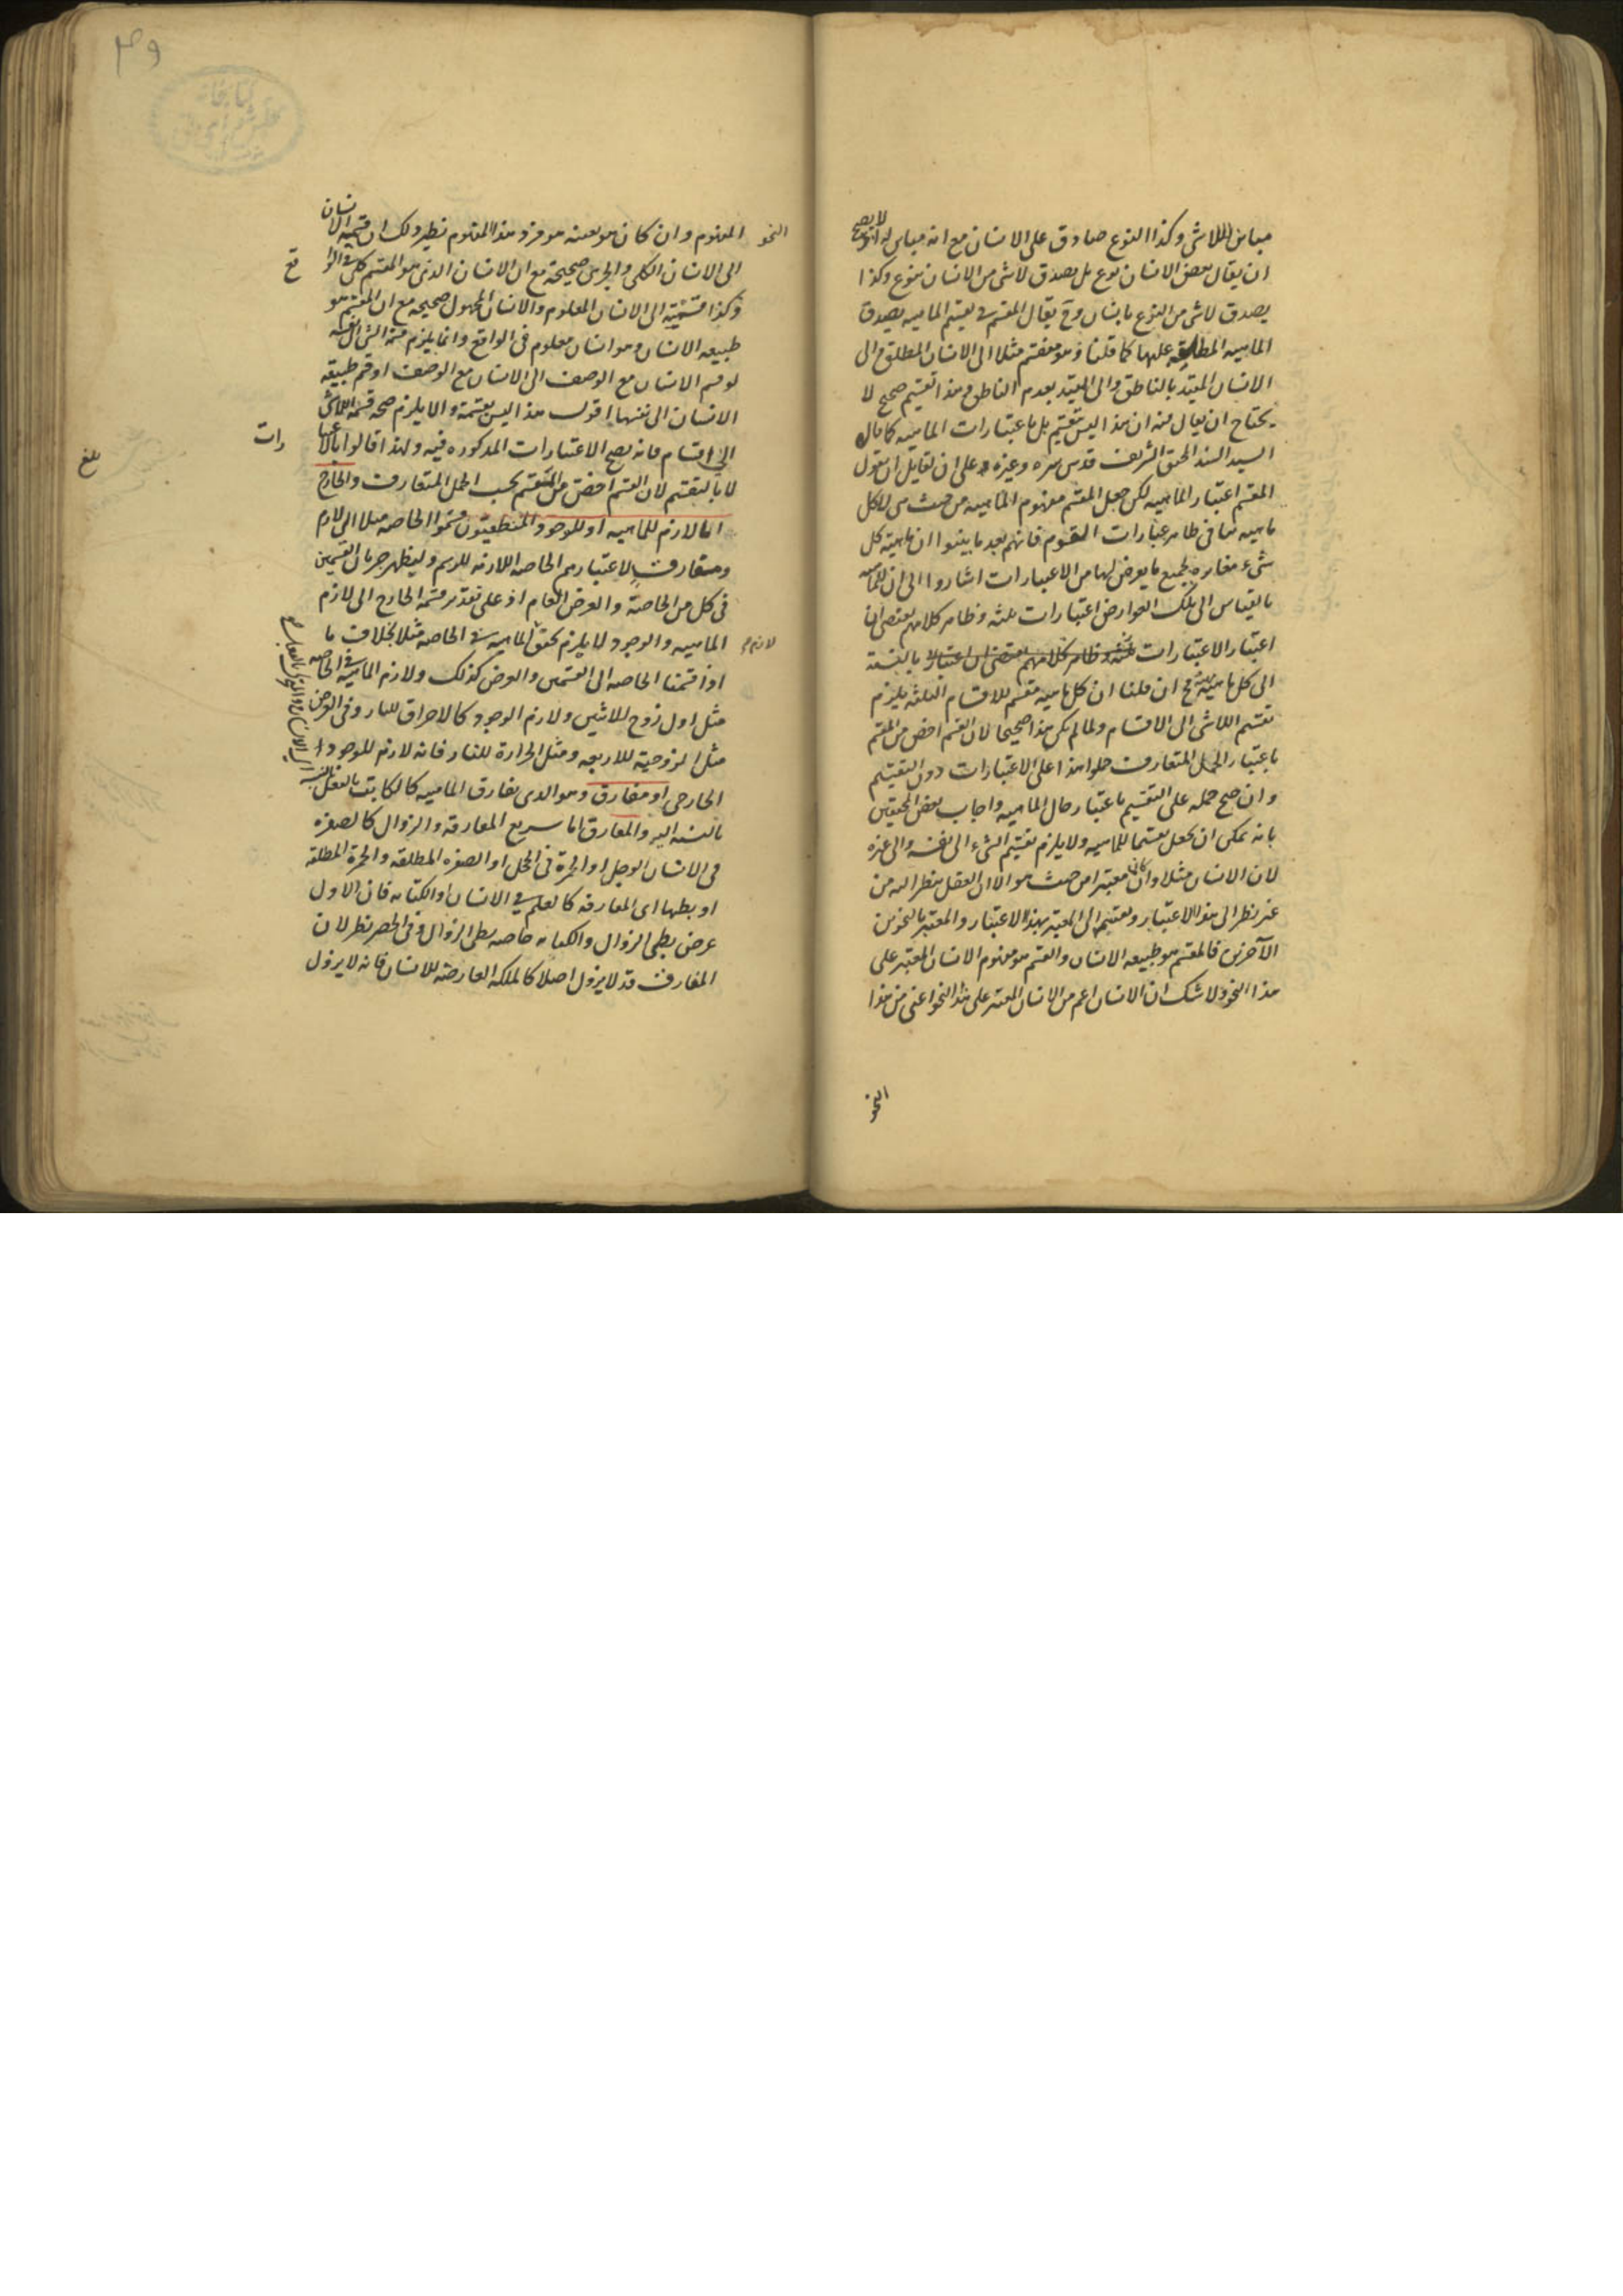 مباين اللاشى وكذا النوع صادق على الانسان مع انه مباين له اذ لا يصح
ان يقال بعض الانسان نوع بل يصدق لاشى من الانسان بنوع وكذا
يصدق لاشى من النوع بانسان وح يقال المقسم فى تقسيم الماهيه يصدق
الماهيه المطلقه عليها كما قلنا وهو مقسم مثلا الى الانسان المطلق والى
الانسان المقيد بالناطق والى المقيد بعدم الناطق وهذا تقسيم صحيح لا
يحتاج ان يقال فيه ان هذا ليس بتقسيم بل باعتبارات الماهيه كما قال
السيد السند المحقق الشريف قدس سره وغيره على ان لقايل ان يقول
المقسم اعتبار الماهيه لكن جعل المقسم مفهوم الماهيه من حيث هى لا كل
ماهيه ينافى ظاهر عبارات القوم فانهم بعد ما بينوا ان ماهية كل
شىء مغايره لجميع ما يعرض لها من الاعتبارات اشاروا الى ان للماهيه
بالقياس الى تلك العوارض اعتبارات ثلثه وظاهر كلامهم يقتضى ان
اعتبار الاعتبارات بالنسبة
الى كل ماهيه فح ان قلنا ان كل ماهيه مقسم للاقسام الثلثه يلزم
تقسيم اللاشى الى الاقسام ولما لم يكن هذا صحيحا لان القسم اخص من المقسم
باعتبار الحمل المتعارف حملوا هذا على الاعتبارات دون التقسيم
وان صح حمله على التقسيم باعتبار حال الماهيه واجاب بعض المحققين
بانه يمكن ان يجعل تقسيما للماهيه ولا يلزم تقسيم الشىء الى نفسه والى غيره
لان الانسان مثلا وان كان معتبرا من حيث هو الا ان العقل ينظر اليه من
غير نظر الى هذا الاعتبار ويقسم الى المعتبر بهذا الاعتبار والمعتبر بالنحوين
الآخرين فالمقسم هو طبيعه الانسان والقسم هو مفهوم الانسان المعتبر على
هذا النحو ولا شك ان الانسان اعم من الانسان المعتبر على هذا النحو اعنى من هذا
النحو
النحو
المفهوم وان كان هو بعينه هو فرد هذا المفهوم نظير ذلك ان قسمة الانسان
الى الانسان الكلى والجزئى صحيحة مع ان الانسان الذى هو المقسم كلى فى الوا قع
وكذا قسمته الى الانسان المعلوم والانسان المجهول صحيحه مع ان المقسم هو
طبيعه الانسان وهو انسان معلوم فى الواقع وانما يلزم قسمة الشى الى نفسه
لو قسم الانسان مع الوصف الى الانسان مع الوصف او قسم طبيعه
الانسان الى نفسها اقول هذا ليس بقسمة والا يلزم صحة قسمة اللاشى
الى اقسام فانه يصح الاعتبارات المذكوره فيه ولهذا قالوا بالاعتبا رات
لا بالتقسيم لان القسم اخص من المقسم بحسب الحمل المتعارف والخارج
اما لازم للماهيه او للوجود المنطقيون قسموا الخاصه مثلا الى لازم
ومفارق لاعتبارهم الخاصه اللازمه للرسم وليظهر جريان القسمين
فى كل من الخاصة والعرض العام اذ على تقدير قسمة الخارج الى لازم
الماهيه والوجود لا يلزم تحقق لازم الماهيه فى الخاصه مثلا بخلاف ما
اذا قسمنا الخاصه الى القسمين والعرض كذلك ولازم الماهية فى الخاصه
مثل اول زوج للاثنين ولازم الوجود كالاحراق للنار وفى العرض
مثل الزوجية للاربعه ومثل الحرارة للنار فانه لازم للوجود
الخارجى او مفارق وهو الذى يفارق الماهيه كالكاتب بالفعل
بالنسبه اليه والمفارق اما سريع المفارقة والزوال كالصفره
فى الانسان الوجل او الحمرة فى الخجل او الصفره المطلقه والحمرة المطلقه
او بطيها اى المفارقه كالعلم فى الانسان او الكتابه فان الاول
عرض بطى الزوال والكتابه خاصه بطى الزوال وفى الحصر نظر لان
المفارق قد لا يزول اصلا كالملكه العارضه للانسان فانه لا يزول
بلغ